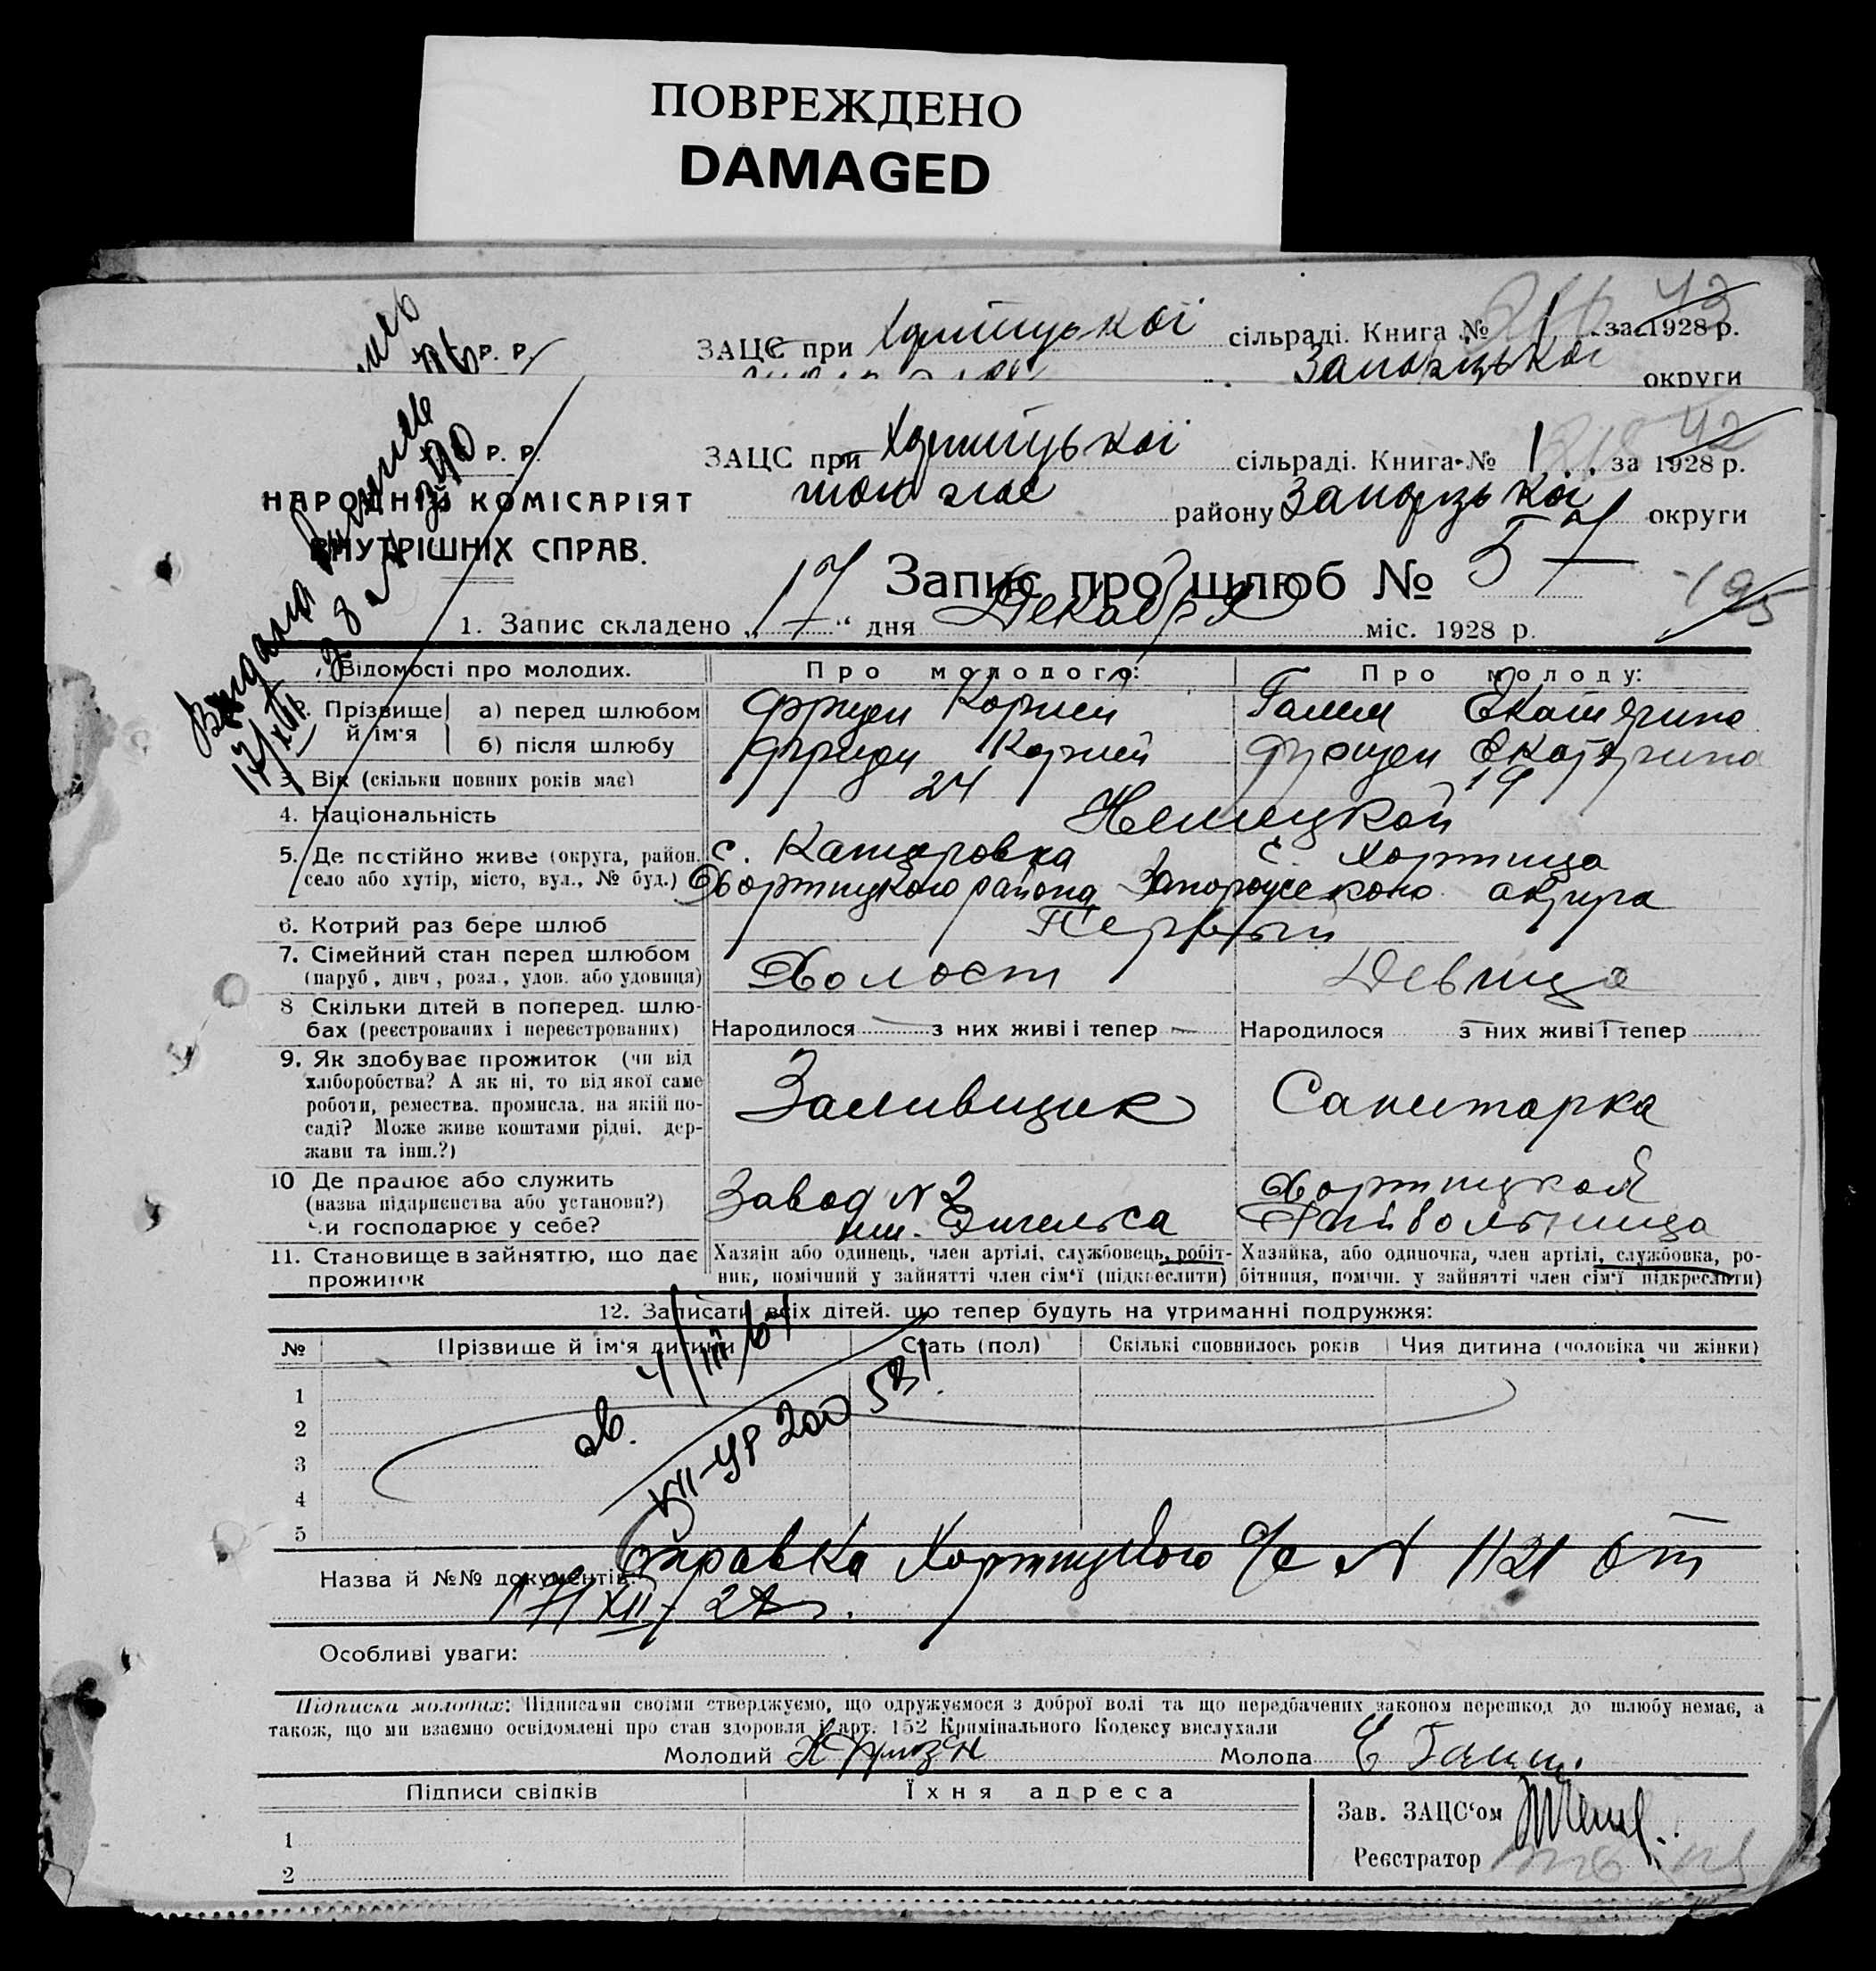 ПОВРЕЖДЕНО
DAMAGED
Р. Р.
ЗАЦС при Хортицької сільраді. Книга № 1 за 1928 р.
Запорізької округи
Р. Р.
ЗАЦС при Хортицької сільраді. Книга № 1 за 1928 р.
району Запорізької округи
НАРОДНІЙ КОМІСАРІЯТ
ВНУТРІШНІХ СПРАВ.
Запис про шлюб № 57
195
1. Запис складено „17“ дня Декабря міс. 1928 р.
Відомості про молодих. Про молодого: Про молоду:
2. Прізвище й ім'я а) перед шлюбом Фризен Корней Галли Екатерина
б) після шлюбу Фризен Корней Фризен Екатерина
3. Вік (скільки повних років має) 24 19
4. Національність Немецкой
5. Де постійно живе (округа, район, с. Канцеровка с. Хортица
село або хутір, місто, вул., № буд.) Хортицкого района Запорожского округа
6. Котрий раз бере шлюб Первый
7. Сімейний стан перед шлюбом Холост Девица
(паруб., дівч., розл., удов. або удовиця)
8 Скільки дітей в поперед. шлю-
бах (реєстрованих і нереєстрованих) Народилося з них живі і тепер Народилося з них живі і тепер
9. Як здобуває прожиток (чи від
хліборобства? А як ні, то від якої саме
роботи, ремества, промисла, на якій по- Заливщик Санитарка
саді? Може живе коштами рідні, дер-
жави та інш.?)
10 Де працює або служить Завод N 2 Хортицкой
(назва підприємства або установи?) им. Энгельса Райбольница
чи господарює у себе?
11. Становище в зайняттю, що дає Хазяін або одинець, член артілі, службовець, робіт- Хазяйка, або одиночка, член артілі, службовка, ро-
прожиток ник, помічний у зайнятті член сім'ї (підкреслити) бітниця, помічн. у зайнятті член сім'ї підкреслити)
12. Записати всіх дітей, що тепер будуть на утриманні подружжя:
№ Прізвище й ім'я дитини Стать (пол) Скількі сповнилось років Чия дитина (чоловіка чи жінки)
1
2
3
4
5
Назва й №№ документів: Справка Хортицкого с/с N 1121 от
17/XII 28 г.
Особливі уваги:
Підписка молодих: Підписами своїми стверджуємо, що одружуємося з доброї волі та що передбачених законом перешкод до шлюбу немає, а
також, що ми взаємно освідомлені про стан здоровля і арт. 152 Кримінального Кодексу вислухали
Молодий К Фризен Молода Е Галли
Підписи свідків Їхня адреса
Зав. ЗАЦС'ом
1
Реєстратор
2